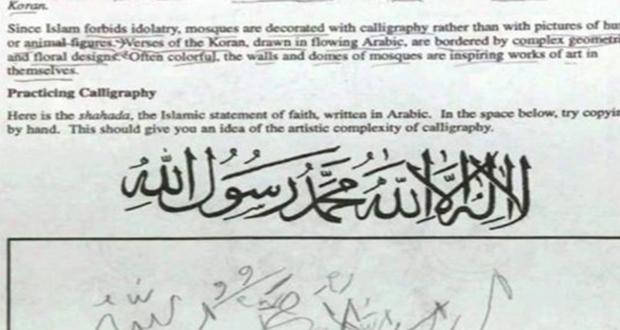 Koran.
Since Islam forbids idolatry, mosques are decorated with calligraphy rather than with pictures of hu
or animal figures. Verses of the Koran, drawn in flowing Arabic, are bordered by complex geometri
and floral designs. Often colorful, the walls and domes of mosques are inspiring works of art in
themselves.
Practicing Calligraphy
Here is the shahada, the Islamic statement of faith, written in Arabic. In the space below, try copyin
by hand. This should give you an idea of the artistic complexity of calligraphy.
لا إله إلا الله محمد رسول الله